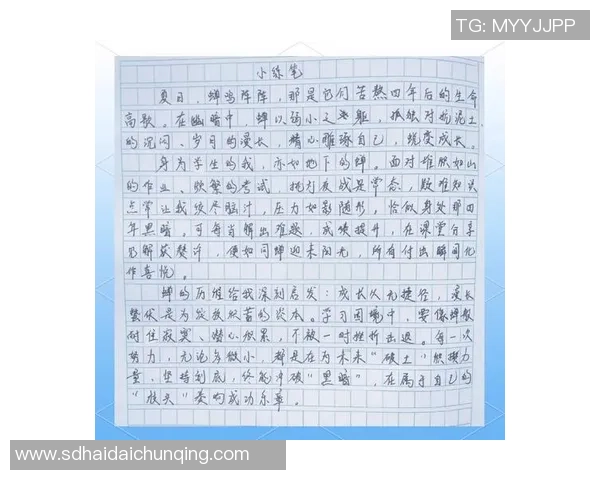 TG: MYYJJPP
小练笔
夏日，蝉鸣阵阵，那是它们苦熬四年后的生命
高歌。在幽暗中，蝉以弱小之躯，孤独对抗泥土
的沉闷、岁月的漫长，精心雕琢自己，蜕变成长。
身为学生的我，亦如地下的蝉。面对堆积如山
的作业、频繁的考试，挑灯夜战是常态，疑难知识
点常让我绞尽脑汁，压力如影随形，恰似身处那四
年黑暗。可每当解出难题，成绩提升，在课堂分享
见解获赞许，便如同蝉迎来阳光，所有付出瞬间化
作喜悦。
蝉的历程给我深刻启发：成长从无捷径，漫长
蛰伏是为发致积蓄的资本。学习困境中，要像蝉般
耐住寂寞、潜心积累，不被一时挫折击退。每一次
努力，无论多微小，都是在为未来“破土”积攒力
量，坚持到底，终能冲破“黑暗”，在属于自己的
“枝头”奏响成功乐章。
www.sdhaidaichunqing.com